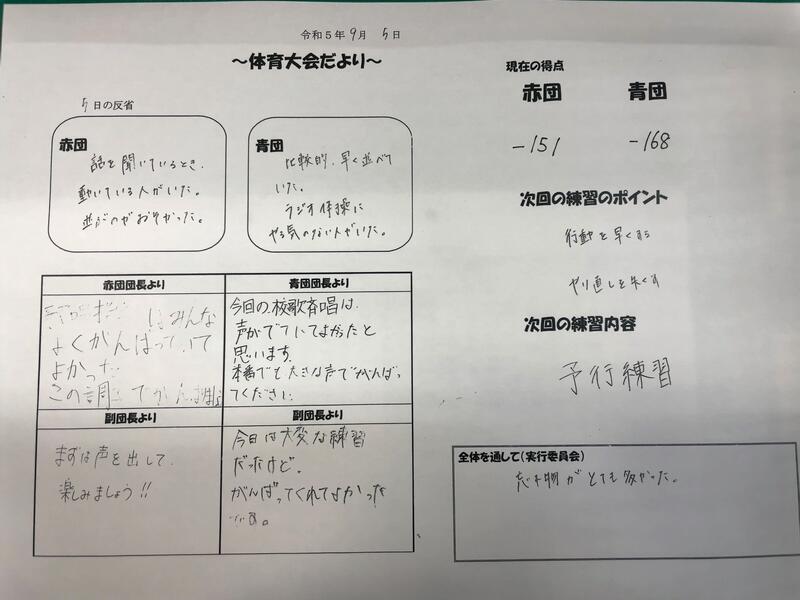 令和5年9月 5日
~体育大会だより~
5日の反省
赤団
話を聞いているとき、
動いている人がいた。
並ぶのがおそかった。
青団
比較的、早く並べて
いた。
ラジオ体操に
やる気のない人がいた。
赤団団長より
はみんな
よくがんばっていて
よかった
この調 でがんば
青団団長より
今回の、校歌斉唱は、
声がでていてよかったと
思います。
本番でも大きな声でがんばっ
てください。
副団長より
まずは声を出して、
楽しみましょう!!
副団長より
今日は大変な練習
だったけど、
がんばってくれてよかった
現在の得点
赤団 青団
-151 -168
次回の練習のポイント
行動を早くする
やり直しを
次回の練習内容
予行練習
全体を通して(実行委員会)
忘れ物がとても多かった。